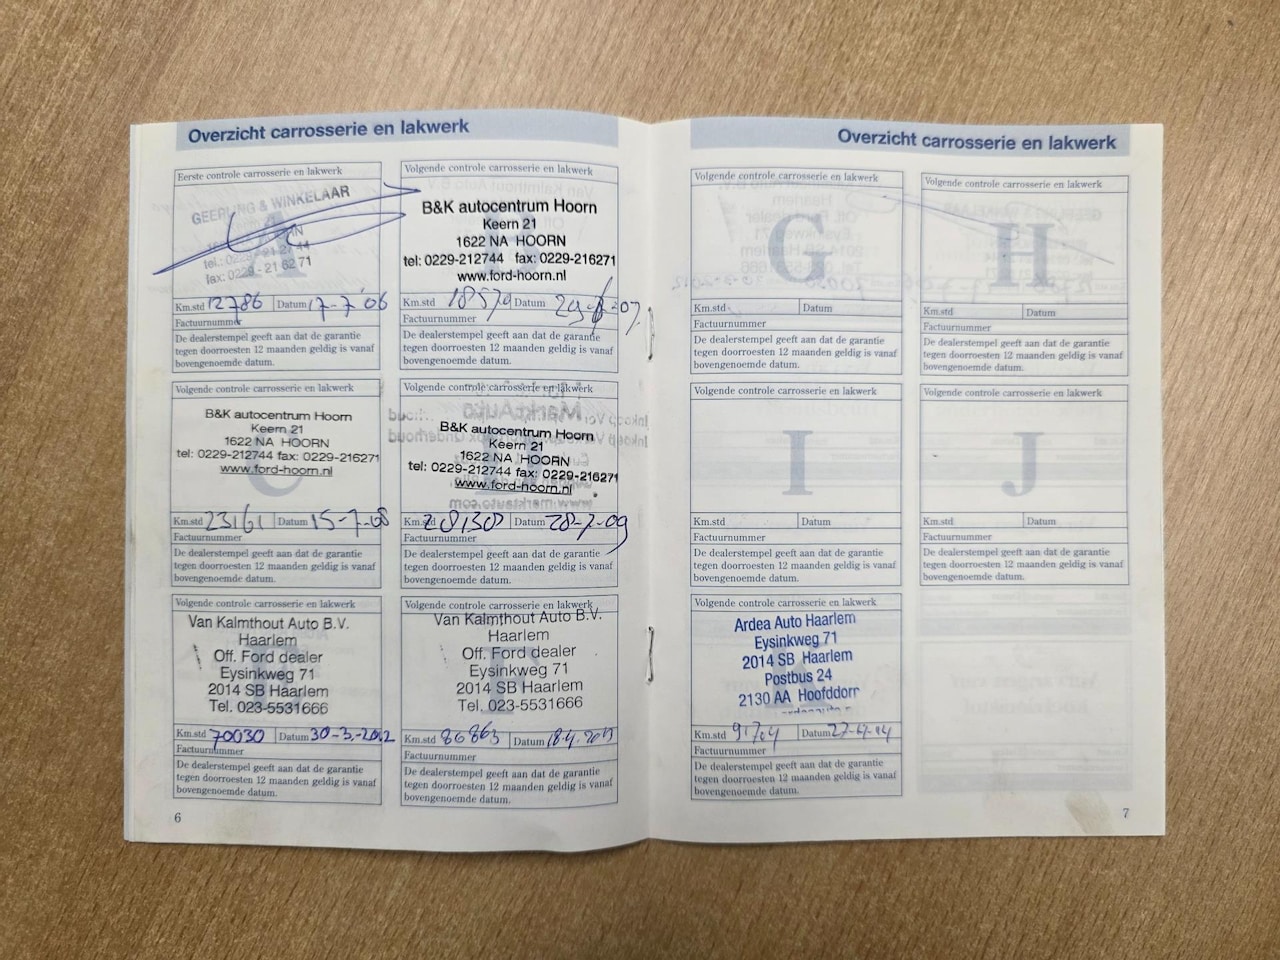 Overzicht carrosserie en lakwerk
Eerste controle carrosserie en lakwerk
GEERLING & WINKELAAR
fax: 0229 - 21 62 71
Km.std 12786 Datum 17-7-'06
Factuurnummer
De dealerstempel geeft aan dat de garantie
tegen doorroesten 12 maanden geldig is vanaf
bovengenoemde datum.
Volgende controle carrosserie en lakwerk
B&K autocentrum Hoorn
Keern 21
1622 NA HOORN
tel: 0229-212744 fax: 0229-216271
www.ford-hoorn.nl
Km.std Datum
Factuurnummer
De dealerstempel geeft aan dat de garantie
tegen doorroesten 12 maanden geldig is vanaf
bovengenoemde datum.
Volgende controle carrosserie en lakwerk
B&K autocentrum Hoorn
Keern 21
1622 NA HOORN
tel: 0229-212744 fax: 0229-216271
www.ford-hoorn.nl
C
Km.std 23161 Datum 15-7-08
Factuurnummer
De dealerstempel geeft aan dat de garantie
tegen doorroesten 12 maanden geldig is vanaf
bovengenoemde datum.
Volgende controle carrosserie en lakwerk
B&K autocentrum Hoorn
Keern 21
1622 NA HOORN
tel: 0229-212744 fax: 0229-216271
www.ford-hoorn.nl
Km.std Datum 28-7-09
Factuurnummer
De dealerstempel geeft aan dat de garantie
tegen doorroesten 12 maanden geldig is vanaf
bovengenoemde datum.
Volgende controle carrosserie en lakwerk
Van Kalmthout Auto B.V.
Haarlem
Off. Ford dealer
Eysinkweg 71
2014 SB Haarlem
Tel. 023-5531666
Km.std 70030 Datum 30-3-2012
Factuurnummer
De dealerstempel geeft aan dat de garantie
tegen doorroesten 12 maanden geldig is vanaf
bovengenoemde datum.
Volgende controle carrosserie en lakwerk
Van Kalmthout Auto B.V.
Haarlem
Off. Ford dealer
Eysinkweg 71
2014 SB Haarlem
Tel. 023-5531666
Km.std 86863 Datum 18.4.2013
Factuurnummer
De dealerstempel geeft aan dat de garantie
tegen doorroesten 12 maanden geldig is vanaf
bovengenoemde datum.
6
Overzicht carrosserie en lakwerk
Volgende controle carrosserie en lakwerk
G
Km.std Datum
Factuurnummer
De dealerstempel geeft aan dat de garantie
tegen doorroesten 12 maanden geldig is vanaf
bovengenoemde datum.
Volgende controle carrosserie en lakwerk
H
Km.std Datum
Factuurnummer
De dealerstempel geeft aan dat de garantie
tegen doorroesten 12 maanden geldig is vanaf
bovengenoemde datum.
Volgende controle carrosserie en lakwerk
I
Km.std Datum
Factuurnummer
De dealerstempel geeft aan dat de garantie
tegen doorroesten 12 maanden geldig is vanaf
bovengenoemde datum.
Volgende controle carrosserie en lakwerk
J
Km.std Datum
Factuurnummer
De dealerstempel geeft aan dat de garantie
tegen doorroesten 12 maanden geldig is vanaf
bovengenoemde datum.
Volgende controle carrosserie en lakwerk
Ardea Auto Haarlem
Eysinkweg 71
2014 SB Haarlem
Postbus 24
2130 AA Hoofddorp
Km.std 91704 Datum
Factuurnummer
De dealerstempel geeft aan dat de garantie
tegen doorroesten 12 maanden geldig is vanaf
bovengenoemde datum.
7